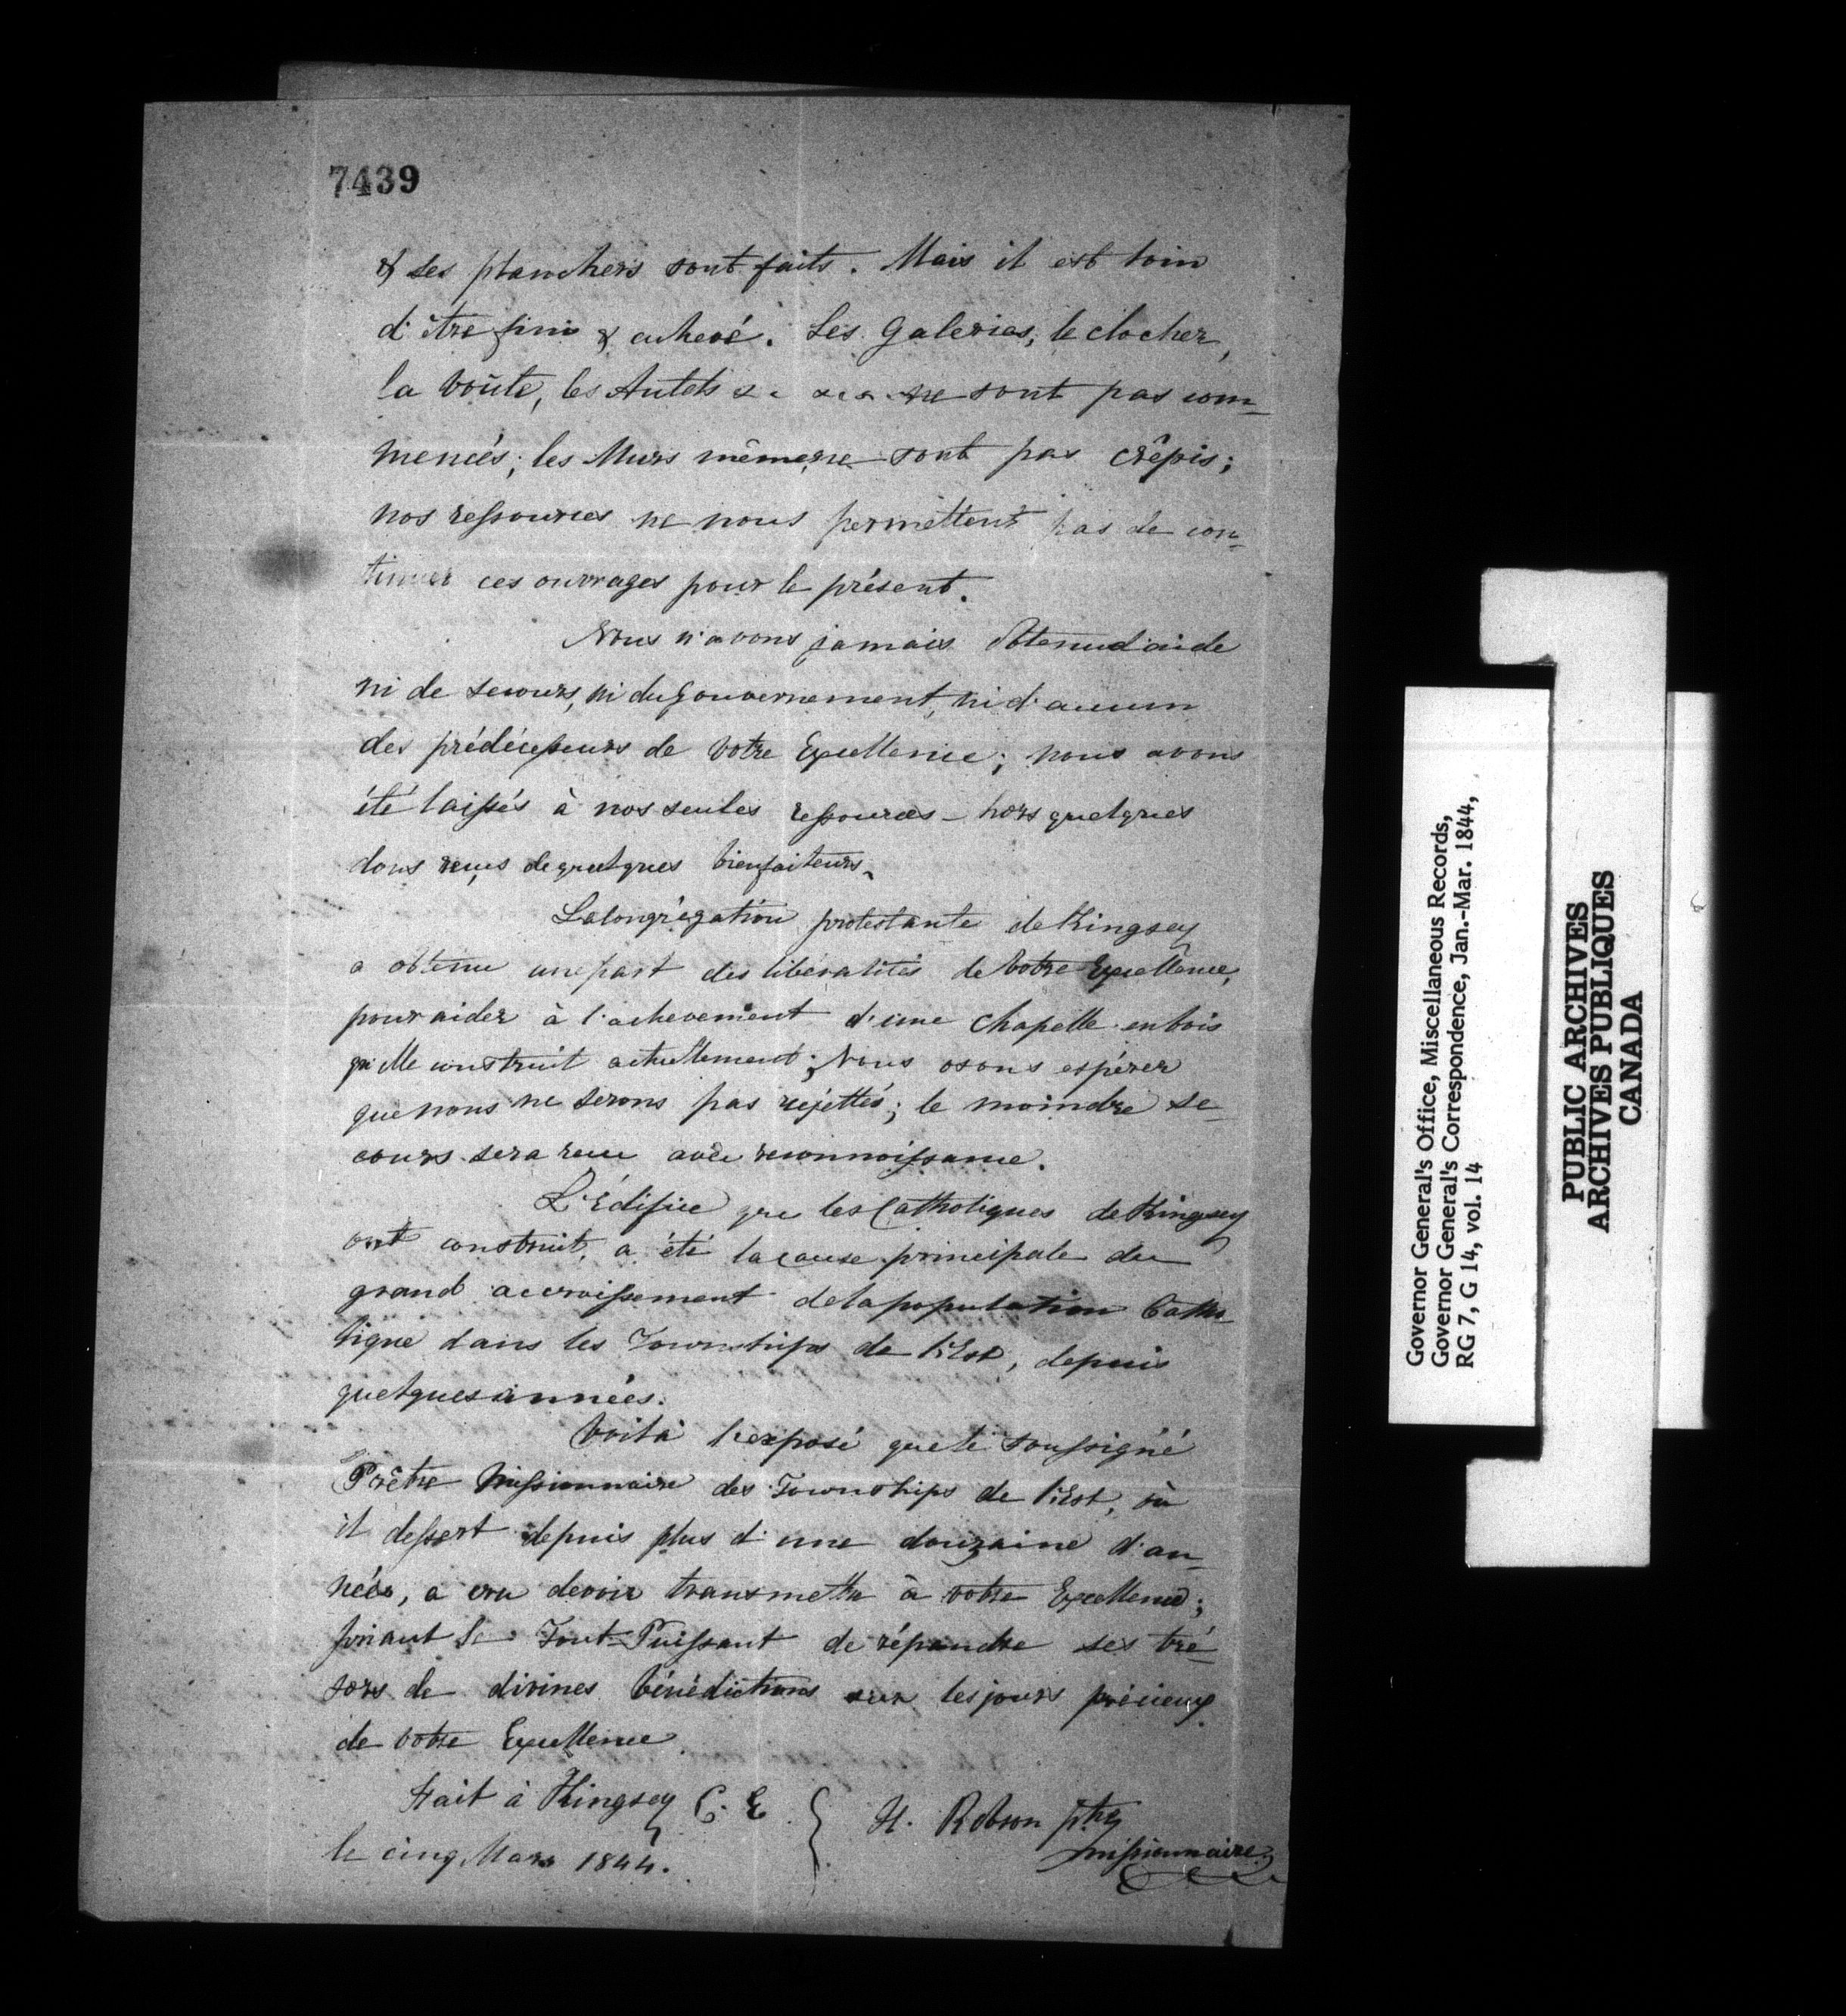 7439
& les planchers sont faits. Mais il est loin
d'être fini & achevé. Les Galeries, le clocher,
la voûte, les Autels &c &c &c ne sont pas com-
mencés; les Murs même ne sont pas crêpis;
nos ressources ne nous permettent pas de con-
tinuer ces ouvrages pour le présent.
Nous n'avons jamais obtenu d'aide
ni de secours, ni du Gouvernement, ni d'aucun
des prédécesseurs de votre Excellence; nous avons
été laissés à nos seules ressources - hors quelques
dons reçus de quelques bienfaiteurs.
La Congrégation protestante de Kingsey
a obtenu une part des libéralités de votre Excellence,
pour aider à l'achevement d'une chapelle en bois
qu'elle construit actuellement; Nous osons espérer
que nous ne serons pas rejettés; le moindre se-
cours sera reçu avec reconnoissance.
L'Édifice que les Catholiques de Kingsey
ont construit, a été la cause principale du
grand accroissement de la population Catho-
lique dans les Townships de l'Est, depuis
quelques années.
Voilà l'exposé que le soussigné
Prêtre Missionnaire des Townships de l'Est, où
il dessert depuis plus d'une douzaine d'an-
nées, a cru devoir transmettre à votre Excellence;
priant le Tout-Puissant de répandre ses tré-
sors de divines bénédictions sur les jours précieux
de votre Excellence
Fait à Kingsey C. E. } H. Robson ptre
le cinq Mars 1844. missionnaire
Governor General's Office, Miscellaneous Records,
Governor General's Correspondence, Jan.-Mar. 1844,
RG 7, G 14, vol. 14
PUBLIC ARCHIVES
ARCHIVES PUBLIQUES
CANADA